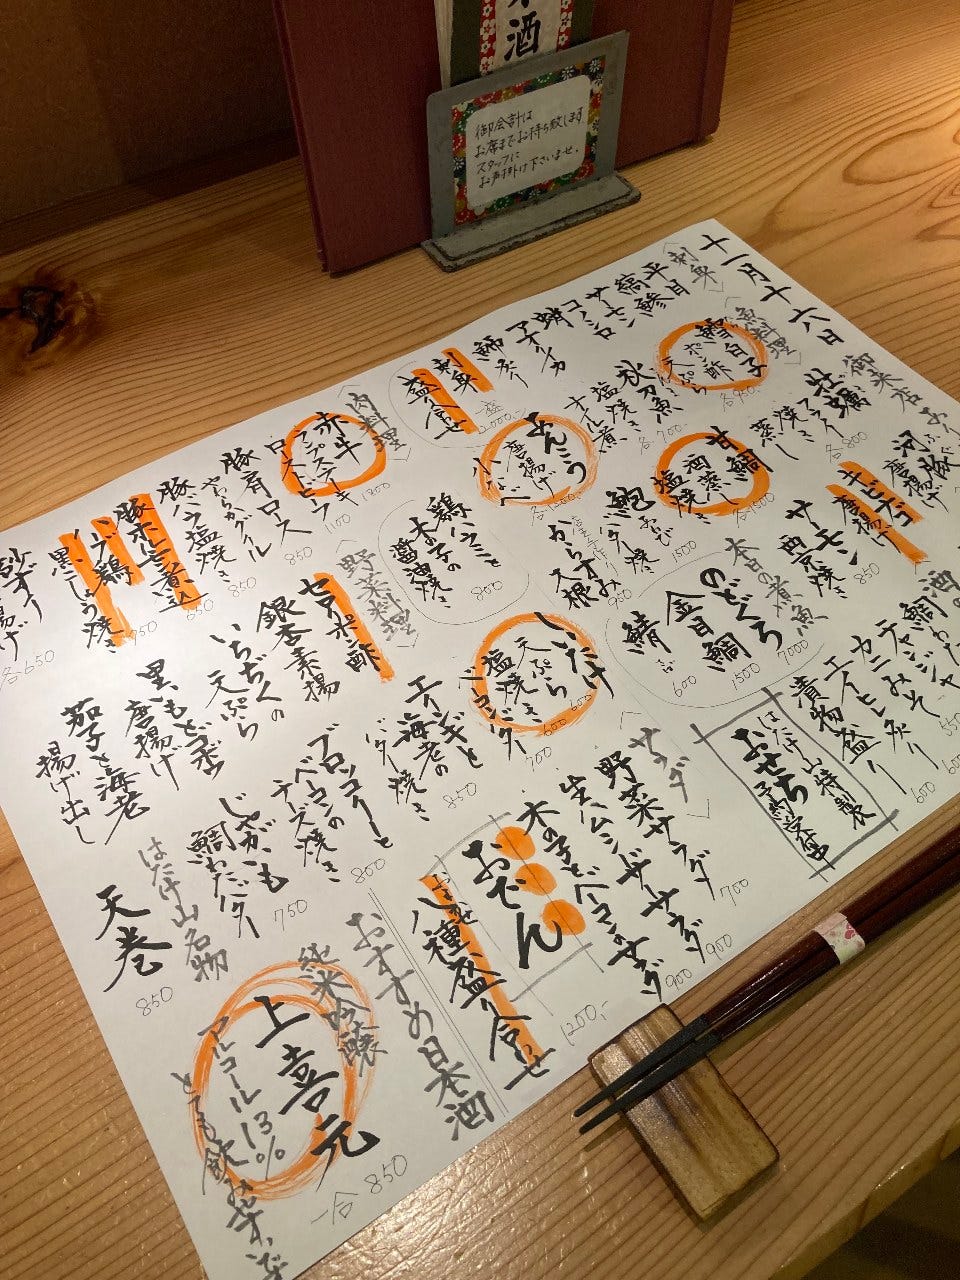 酒
御会計は
お席までお持ち致します
スタッフに
お声掛け下さいませ。
十一月十六日
〈刺身〉
平目
縞鯵
サーモン
コハダ
蛸
アオリイカ
鰤炙り
刺身
盛り合せ
2000,-
〈魚料理〉
鱈白子
ポン酢
天ぷら
各950
牡蠣
フライ
焼き
蒸し
各800
秋刀魚
塩焼き
各700
甘鯛
酒蒸し
塩焼き
各1500
あんこう
唐揚げ
小なべ
各1300
河豚
唐揚げ
キビナゴ
唐揚げ
850
サーモン
西京焼き
鮑
バター焼き
1500
からすみ
大根
900
本日の煮魚
のどぐろ
7000
金目鯛
1500
鯖
600
〈肉料理〉
赤牛
ランプステーキ
1300
ローストビーフ
1100
豚肩ロース
やわらかグリル
850
豚バラ塩焼き
850
豚ホルモン煮込
650
ハーブ鶏
黒こしょう焼き
750
砂ずり
揚げ
各650
鶏ハラミと
木の子の
醤油焼き
800
〈野菜料理〉
しいたけ
天ぷら
600
塩焼き
600
ベーコンバター
700
セロリポン酢
銀杏素揚
いちぢくの
天ぷら
里いも
唐揚げ
茄子と海老
揚げ出し
エリンギと
海老の
バター焼き
850
ブロッコリーと
ベーコンの
チーズ焼き
800
じゃがいも
鯛わたバター
750
はたけ山名物
天巻
850
鯛わたチャンジャ
550
カニみそ
600
エイヒレ炙り
600
漬物盛り
はたけ山特製
おせち
予約受付中
〈サラダ〉
野菜サラダ
700
生ハムシーザーサラダ
900
木の子とベーコンのサラダ
900
おでん
おまかせ
八種盛り合せ
1200,-
おすすめ日本酒
純米吟醸
上喜元
アルコール13%
とても飲みやすいです
一合 850